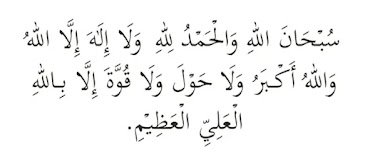 سُبْحَانَ اللهِ وَالْحَمْدُ لِلهِ وَلَا إِلَهَ إِلَّا اللهُ
وَاللهُ أَكْبَرُ وَلَا حَوْلَ وَلَا قُوَّةَ إِلَّا بِاللهِ
الْعَلِيِّ الْعَظِيْمِ.